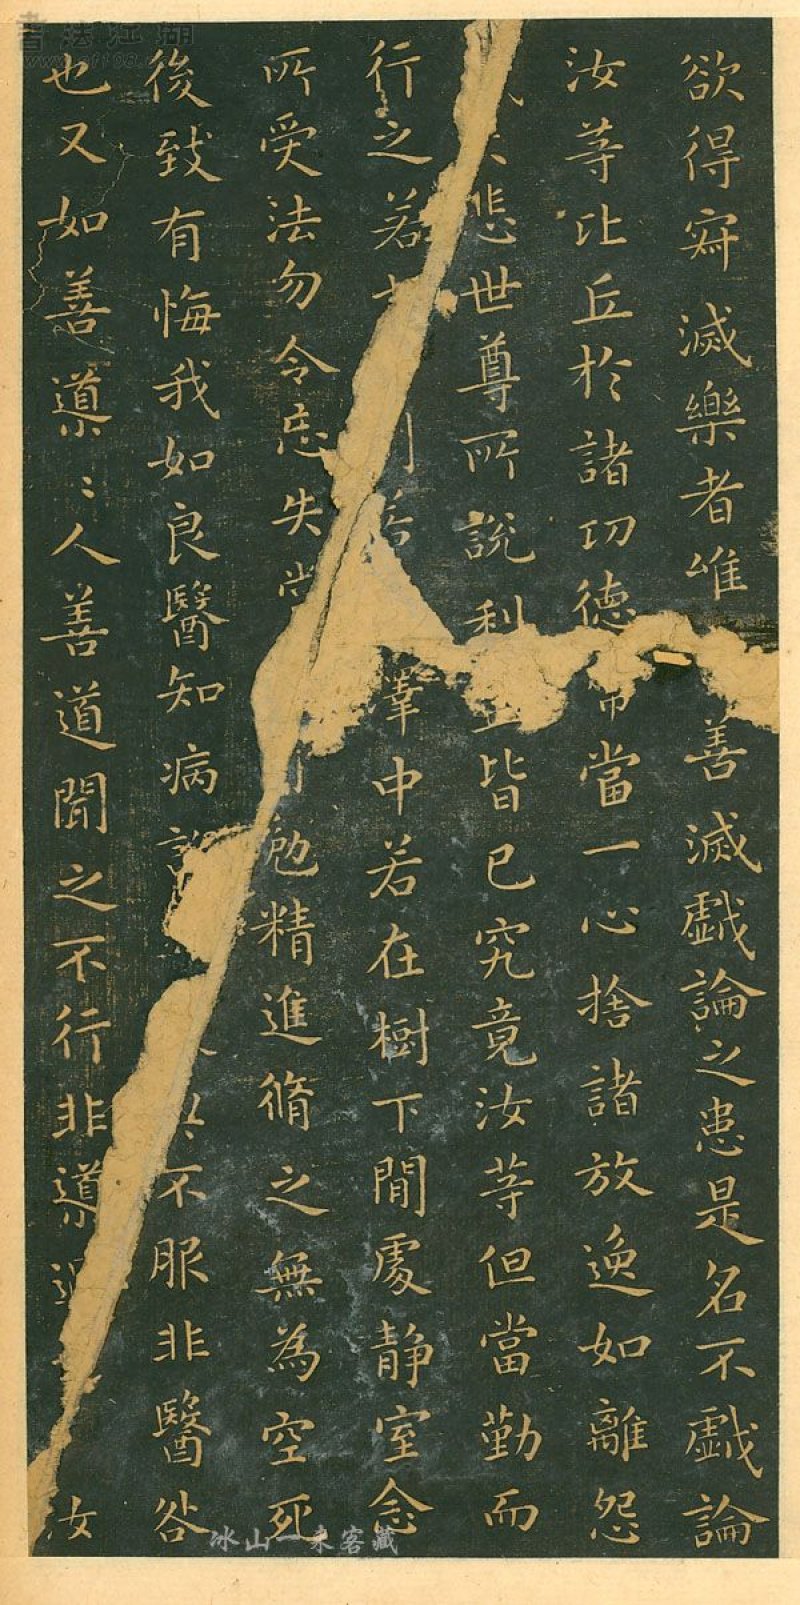 欲得寂滅樂者唯善滅戲論之患是名不戲論
汝等比丘於諸功德常當一心捨諸放逸如離怨
悲世尊所說利皆已究竟汝等但當勤而
行之若中若在樹下閒處靜室念
所受法勿令忘失勉精進脩之無為空死
後致有悔我如良醫知病不服非醫咎
也又如善導〻人善道聞之不行非導汝
冰山一來客藏
書法江湖